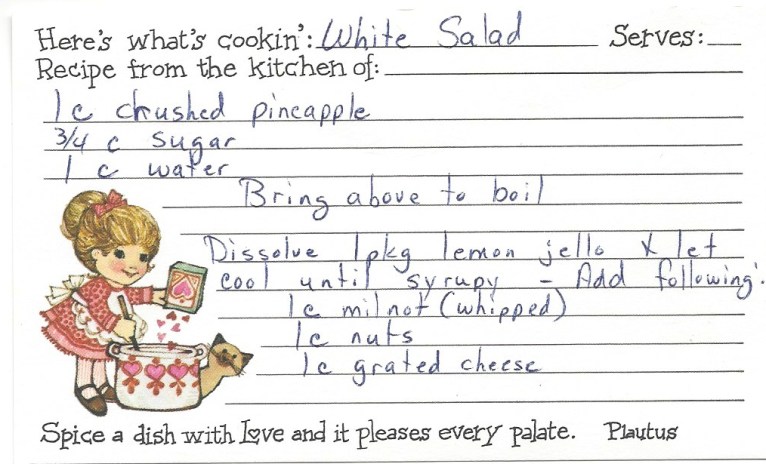 Here's what's cookin': White Salad Serves:
Recipe from the kitchen of:
1 c crushed pineapple
3/4 c sugar
1 c water
Bring above to boil
Dissolve 1 pkg lemon jello & let
cool until syrupy - Add following:
1c milnot (whipped)
1c nuts
1c grated cheese
Spice a dish with Love and it pleases every palate. Plautus